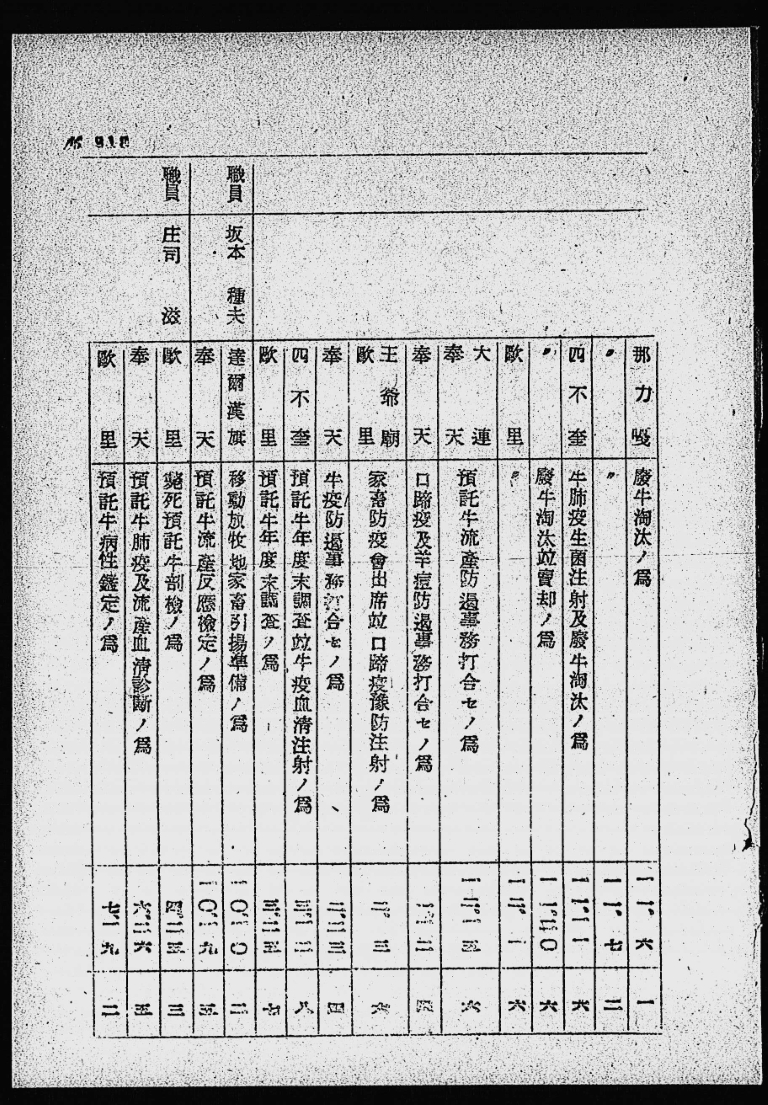 那力嘎 廢牛淘汰ノ爲 一一、六 一
〃 〃 一一、七 二
四不奎 牛肺疫生菌注射及廢牛淘汰ノ爲 一一、一一 六
〃 廢牛淘汰竝賣却ノ爲 一一、二〇 六
歐里 〃 一二、一 六
大連
奉天 預託牛流產防遏事務打合セノ爲 一二、一五 六
奉天 口蹄疫及羊痘防遏事務打合セノ爲 四
王爺廟
歐里 家畜防疫會出席竝口蹄疫豫防注射ノ爲 二、三 六
奉天 牛疫防遏事務打合セノ爲 二、二三 四
四不奎 預託牛年度末調査竝牛疫血清注射ノ爲 三、一二 八
歐里 預託牛年度末調査ノ爲 三、二五 七
職員 坂本 種夫 達爾漢旗 移動放牧地家畜引揚準備ノ爲 一〇、一〇 二
奉天 預託牛流產反應檢定ノ爲 一〇、一九 五
職員 庄司 滋 歐里 斃死預託牛剖檢ノ爲 四、二五 三
奉天 預託牛肺疫及流產血清診斷ノ爲 六、二六 五
歐里 預託牛病性鑑定ノ爲 七、一九 二